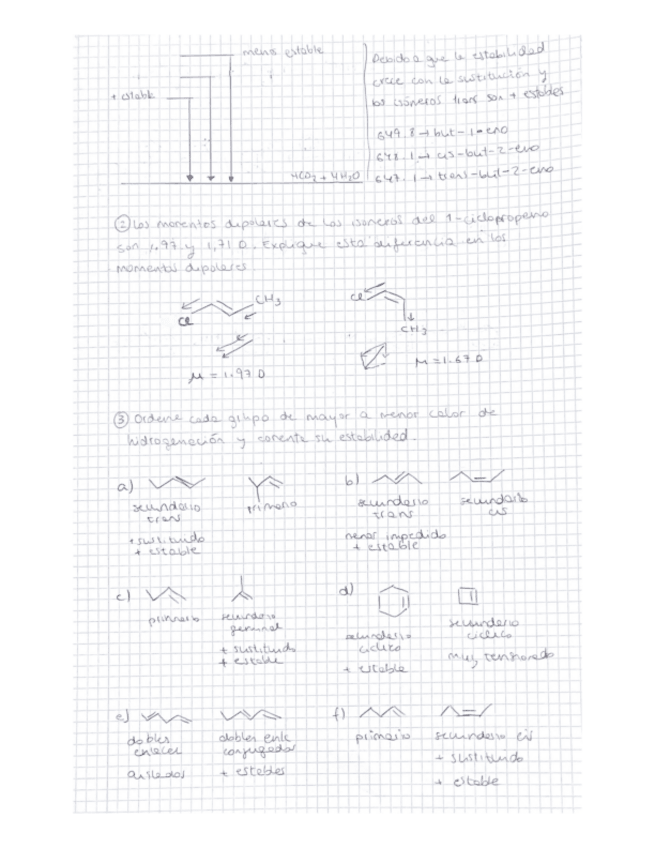 menos estable
+ estable
4CO2 + 4H2O
Debido a que la estabilidad
crece con la sustitución y
los isómeros trans son + estables
649.8 → but-1-eno
648.1 → cis-but-2-eno
647.1 → trans-but-2-eno
② Los momentos dipolares de los isómeros del 1-cicloropeno
son 1.97 y 1,71 D. Explique esta diferencia en los
momentos dipolares
CH3
Cl
Cl
CH3
μ = 1.97 D
μ = 1.67 D
③ Ordene cada grupo de mayor a menor calor de
hidrogenación y comente su estabilidad.
a)
secundario
trans
+ sustituido
+ estable
primario
b)
secundario
trans
menos impedido
+ estable
secundario
cis
c)
primario
secundario
geminal
+ sustituido
+ estable
d)
secundario
cíclico
+ estable
secundario
cíclico
muy tensionado
e)
dobles
enlaces
aislados
dobles enlc
conjugados
+ estables
f)
primario
secundario cis
+ sustituido
+ estable